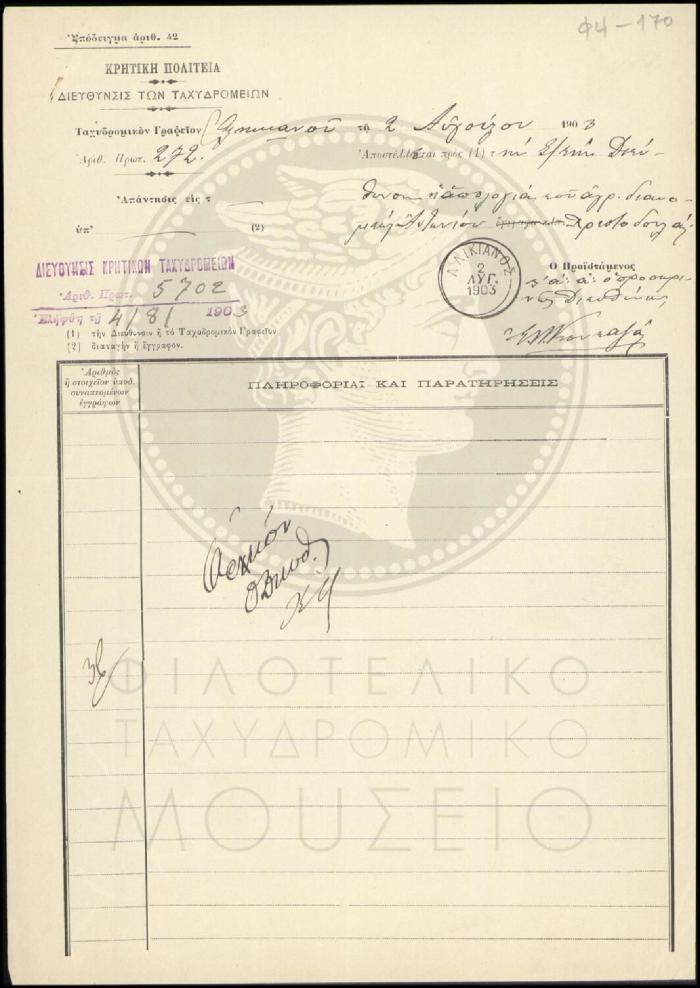 Φ4-170
Ὑπόδειγμα ἀριθ. 42
ΚΡΗΤΙΚΗ ΠΟΛΙΤΕΙΑ
ΔΙΕΥΘΥΝΣΙΣ ΤΩΝ ΤΑΧΥΔΡΟΜΕΙΩΝ
Ταχυδρομικὸν Γραφεῖον Ἀλικιανοῦ τῇ 2 Αὐγούστου 1903
Ἀριθ. Πρωτ. 272. Ἀποστέλλεται πρὸς (1) τὴν Σ/τὴν Διεύ-
Ἀπάντησις εἰς τ
θυνσιν ἡ ἀπολογία τοῦ ἀγρ. διανο-
ὑπ' (2)
ΔΙΕΥΘΥΝΣΙΣ ΚΡΗΤΙΚΩΝ ΤΑΧΥΔΡΟΜΕΙΩΝ
Ἀριθ. Πρωτ. 5702
Ἐλήφθη τῇ 4/8/ 1903
ΑΛΙΚΙΑΝΟΣ
2
ΑΥΓ.
1903
Ὁ Προϊστάμενος
(1) τὴν Διεύθυνσιν ἢ τὸ Ταχυδρομικὸν Γραφεῖον
(2) διαταγὴν ἢ ἔγγραφον.
Ἀριθμὸς
ἢ στοιχεῖον ὑποδ.
συναπτομένων
ἐγγράφων
ΠΛΗΡΟΦΟΡΙΑΙ ΚΑΙ ΠΑΡΑΤΗΡΗΣΕΙΣ
ΦΙΛΟΤΕΛΙΚΟ
ΤΑΧΥΔΡΟΜΙΚΟ
ΜΟΥΣΕΙΟ